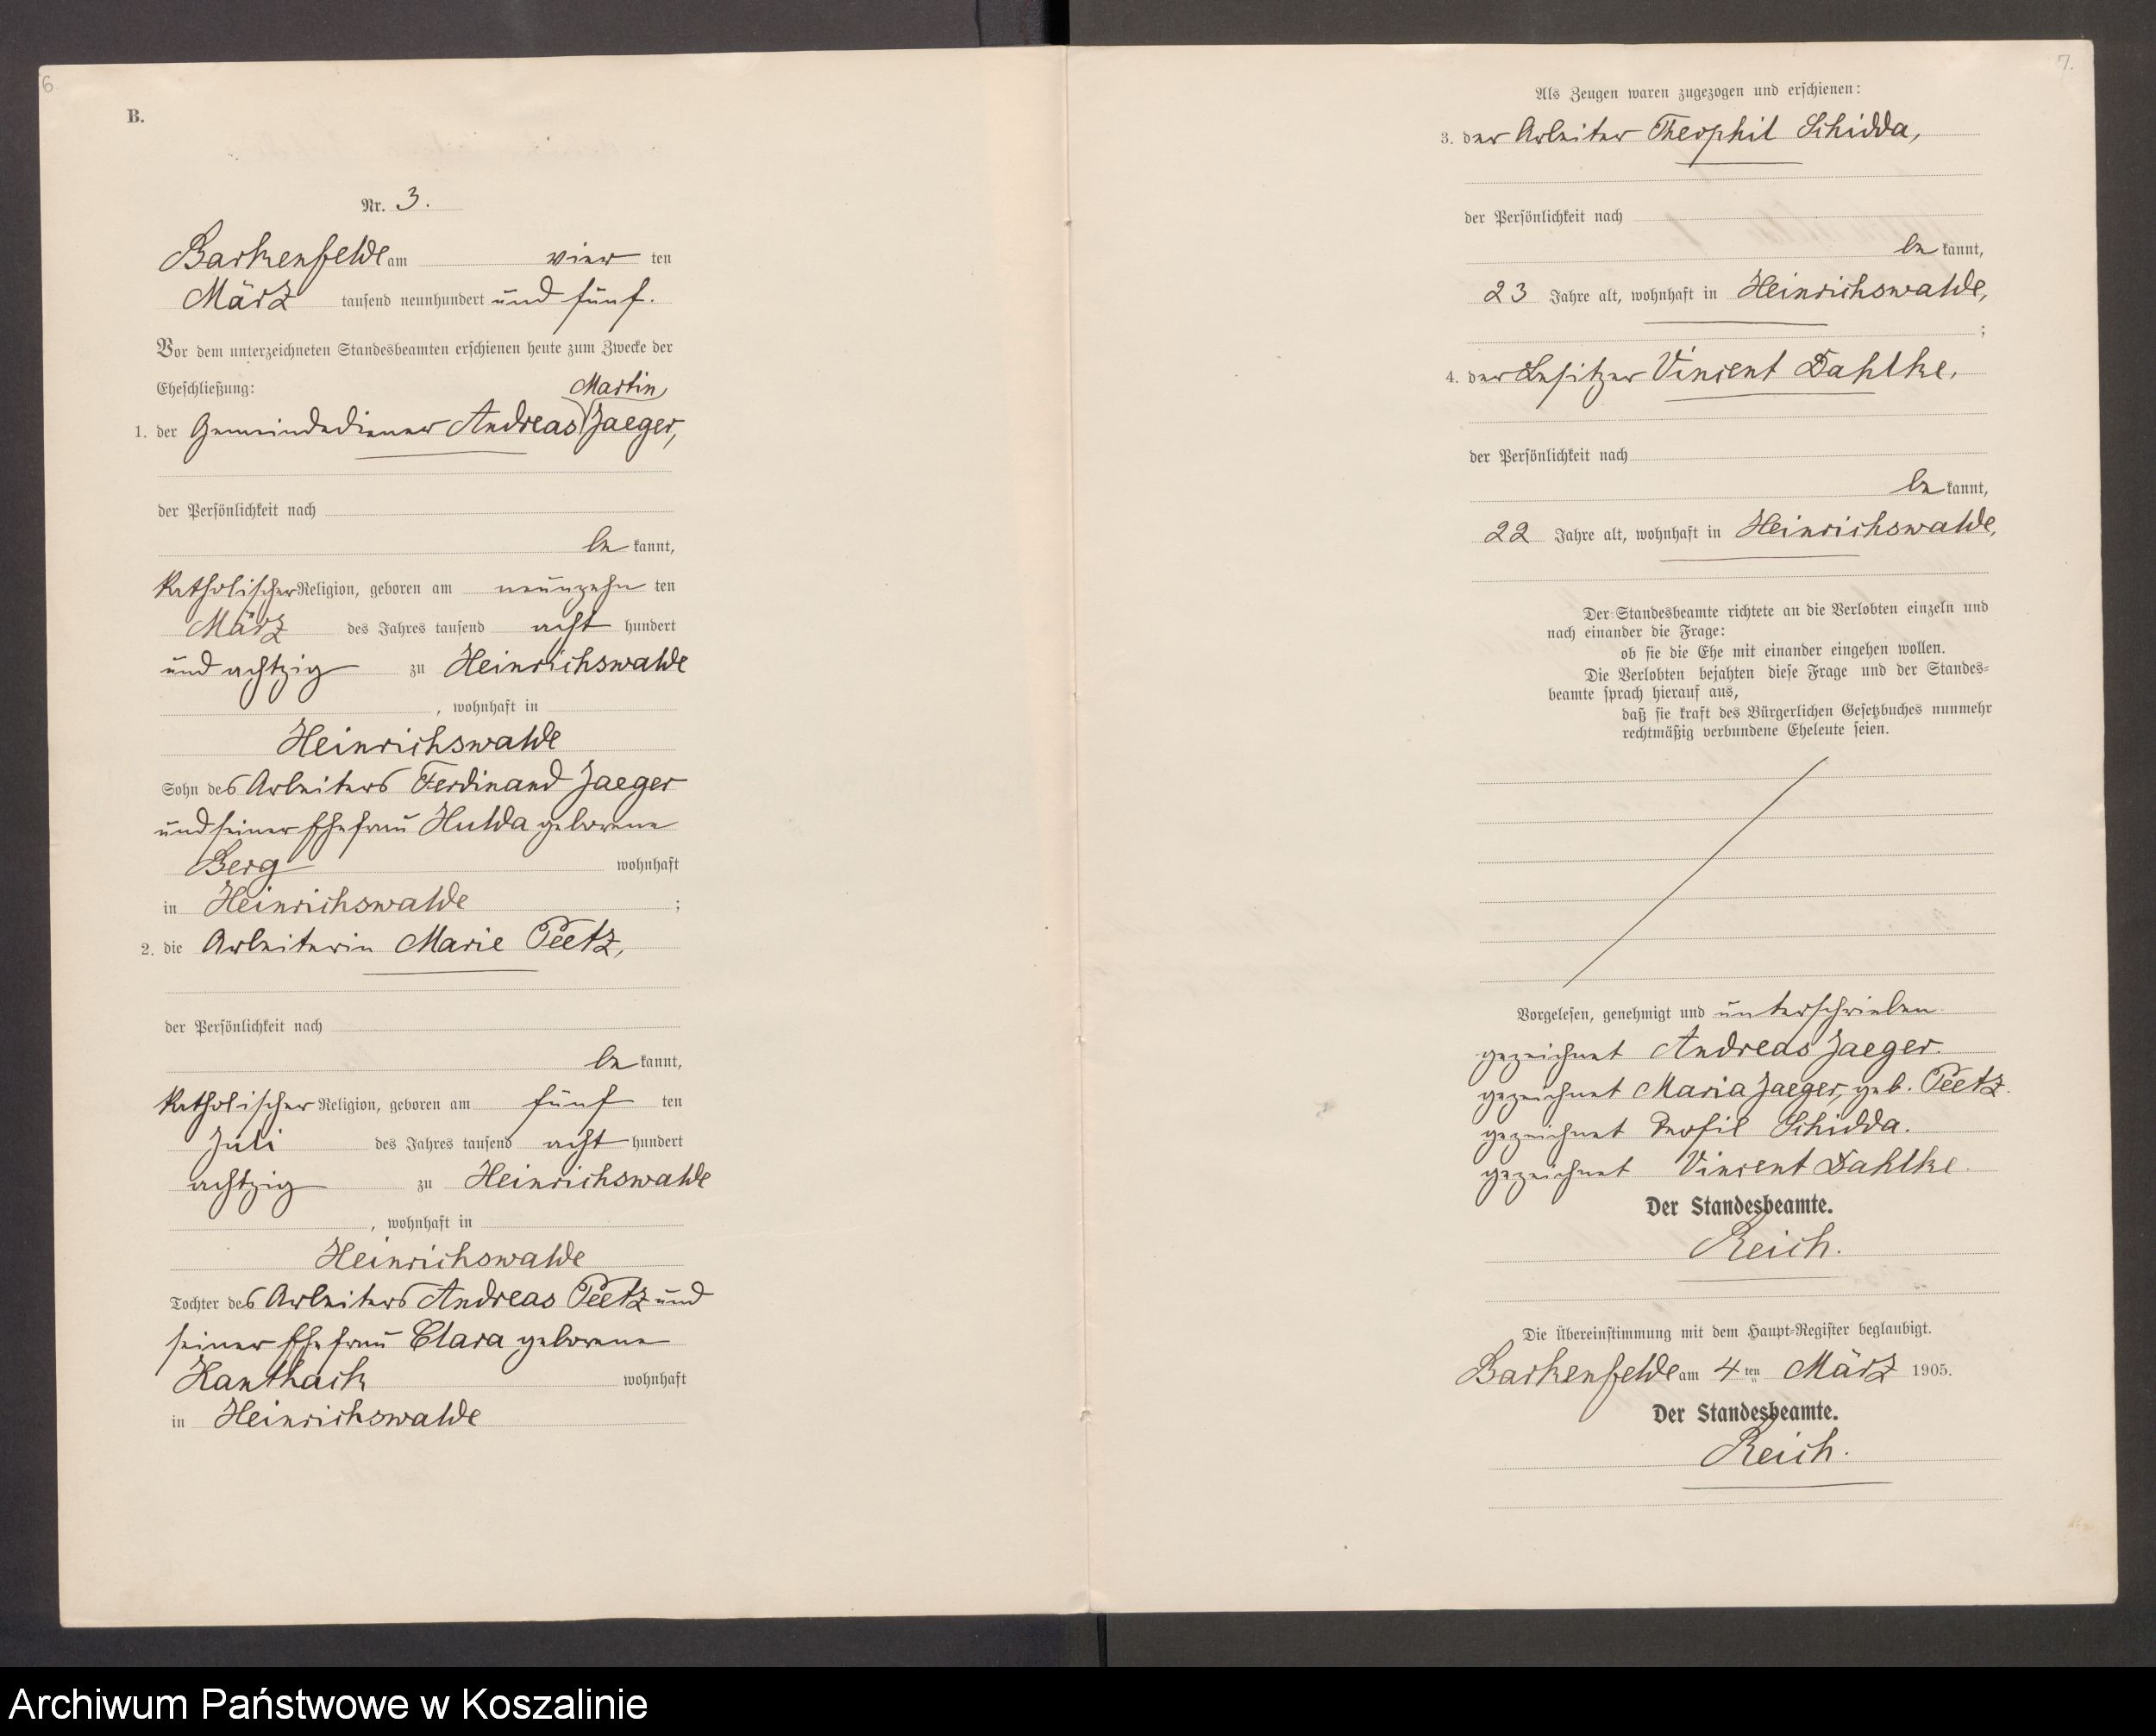 6
B.
Nr. 3.
Barkenfelde am vier ten
März tausend neunhundert und fünf.
Vor dem unterzeichneten Standesbeamten erschienen heute zum Zwecke der
Eheschließung:
Martin
1. der Gemeindediener Andreas Jaeger,
der Persönlichkeit nach
be kannt,
katholischer Religion, geboren am neunzehn ten
März des Jahres tausend acht hundert
und achtzig zu Heinrichswalde
, wohnhaft in
Heinrichswalde
Sohn des Arbeiters Ferdinand Jaeger
und seiner Ehefrau Hulda geborene
Berg wohnhaft
in Heinrichswalde ;
2. die Arbeiterin Marie Peetz,
der Persönlichkeit nach
be kannt,
katholischer Religion, geboren am fünf ten
Juli des Jahres tausend acht hundert
achtzig zu Heinrichswalde
, wohnhaft in
Heinrichswalde
Tochter des Arbeiters Andreas Peetz und
seiner Ehefrau Clara geborene
Kanthack wohnhaft
in Heinrichswalde
7.
Als Zeugen waren zugezogen und erschienen:
3. der Arbeiter Theophil Schidda,
der Persönlichkeit nach
be kannt,
23 Jahre alt, wohnhaft in Heinrichswalde,
;
4. der Besitzer Vincent Dahlke,
der Persönlichkeit nach
be kannt,
22 Jahre alt, wohnhaft in Heinrichswalde,
Der Standesbeamte richtete an die Verlobten einzeln und
nach einander die Frage:
ob sie die Ehe mit einander eingehen wollen.
Die Verlobten bejahten diese Frage und der Standes-
beamte sprach hierauf aus,
daß sie kraft des Bürgerlichen Gesetzbuches nunmehr
rechtmäßig verbundene Eheleute seien.
Vorgelesen, genehmigt und unterschrieben
gezeichnet Andreas Jaeger.
gezeichnet Maria Jaeger, geb. Peetz.
gezeichnet Teofil Schidda.
gezeichnet Vincent Dahlke.
Der Standesbeamte.
Reich.
Die Übereinstimmung mit dem Haupt-Register beglaubigt.
Barkenfelde am 4 ten März 1905.
Der Standesbeamte.
Reich.
Archiwum Państwowe w Koszalinie